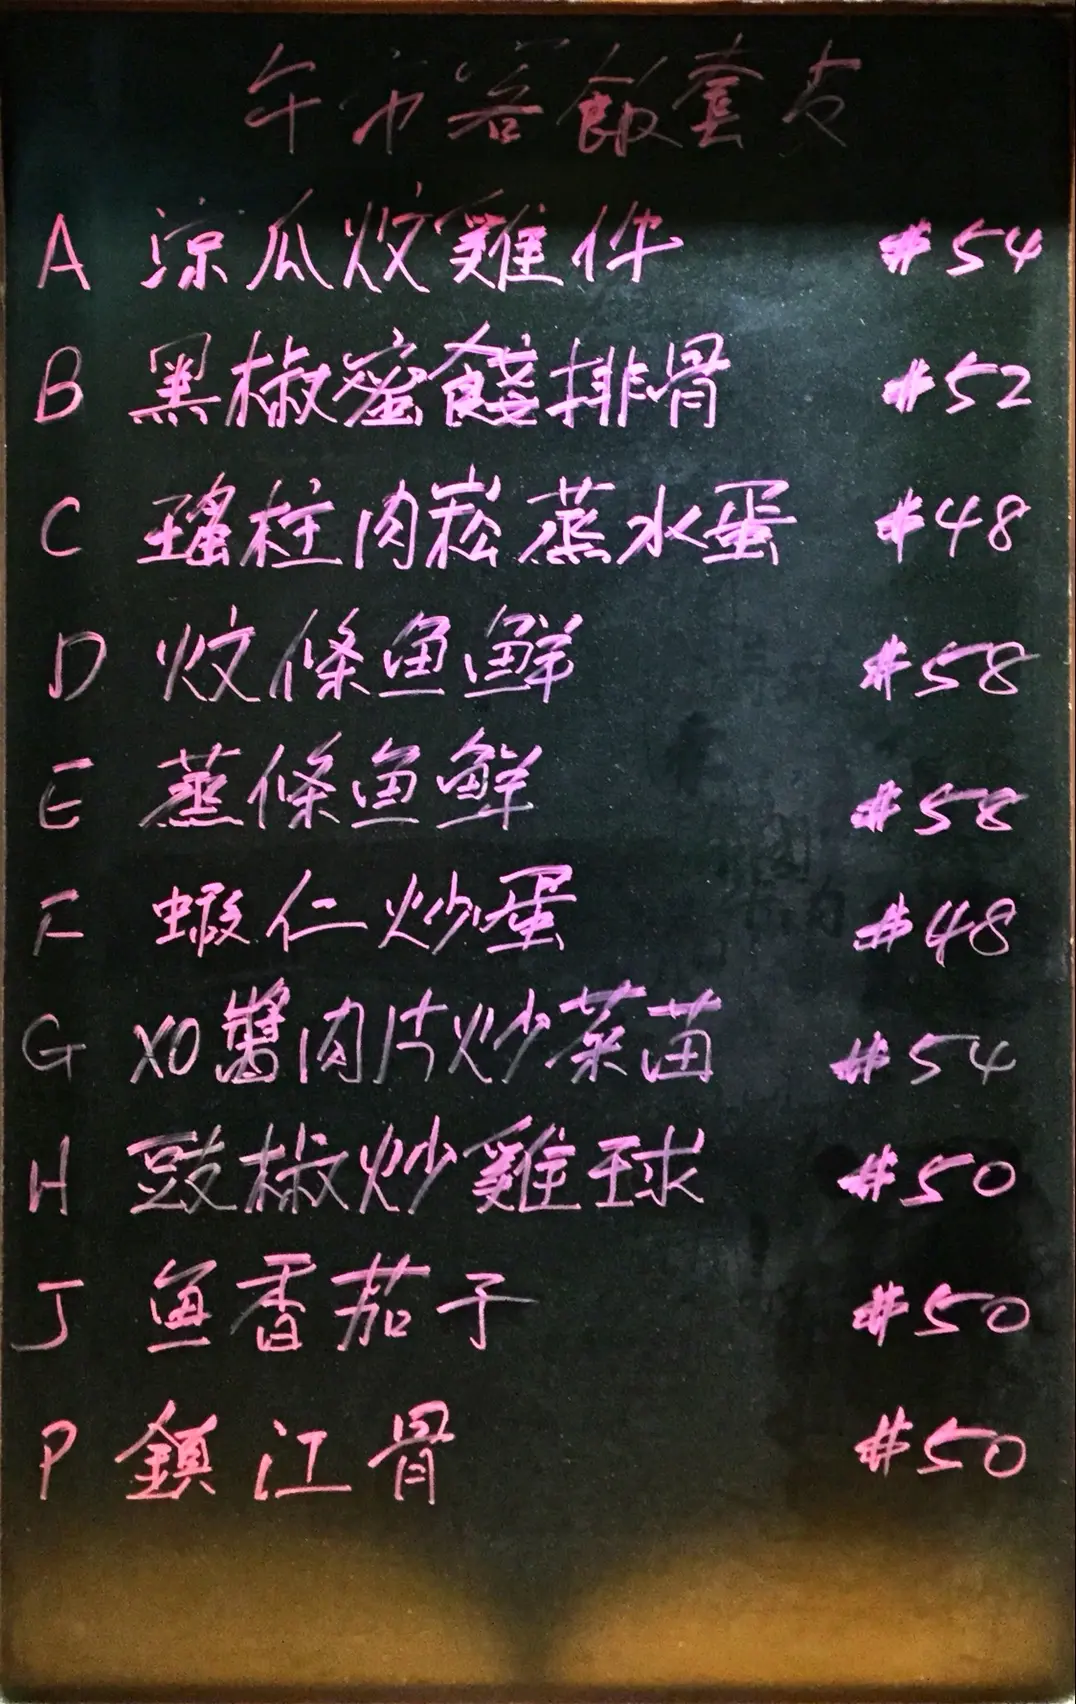 午市客飯套餐
A 涼瓜炆雞件 #54
B 黑椒蜜餞排骨 #52
C 瑤柱肉崧蒸水蛋 #48
D 炆條魚鮮 #58
E 蒸條魚鮮 #58
F 蝦仁炒蛋 #48
G XO醬肉片炒菜苗 #54
H 豉椒炒雞球 #50
J 魚香茄子 #50
P 鎮江骨 #50